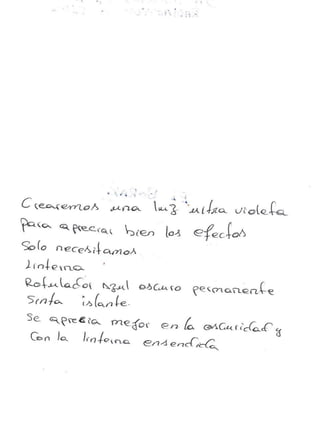 Crearemos una luz ultra violeta
para apreciar bien los efectos
Solo necesitamos
Linterna
Rotulador Azul oscuro permanente
Sinta islante.
Se aprecia mejor en la oscuridad y
Con la linterna ensendida